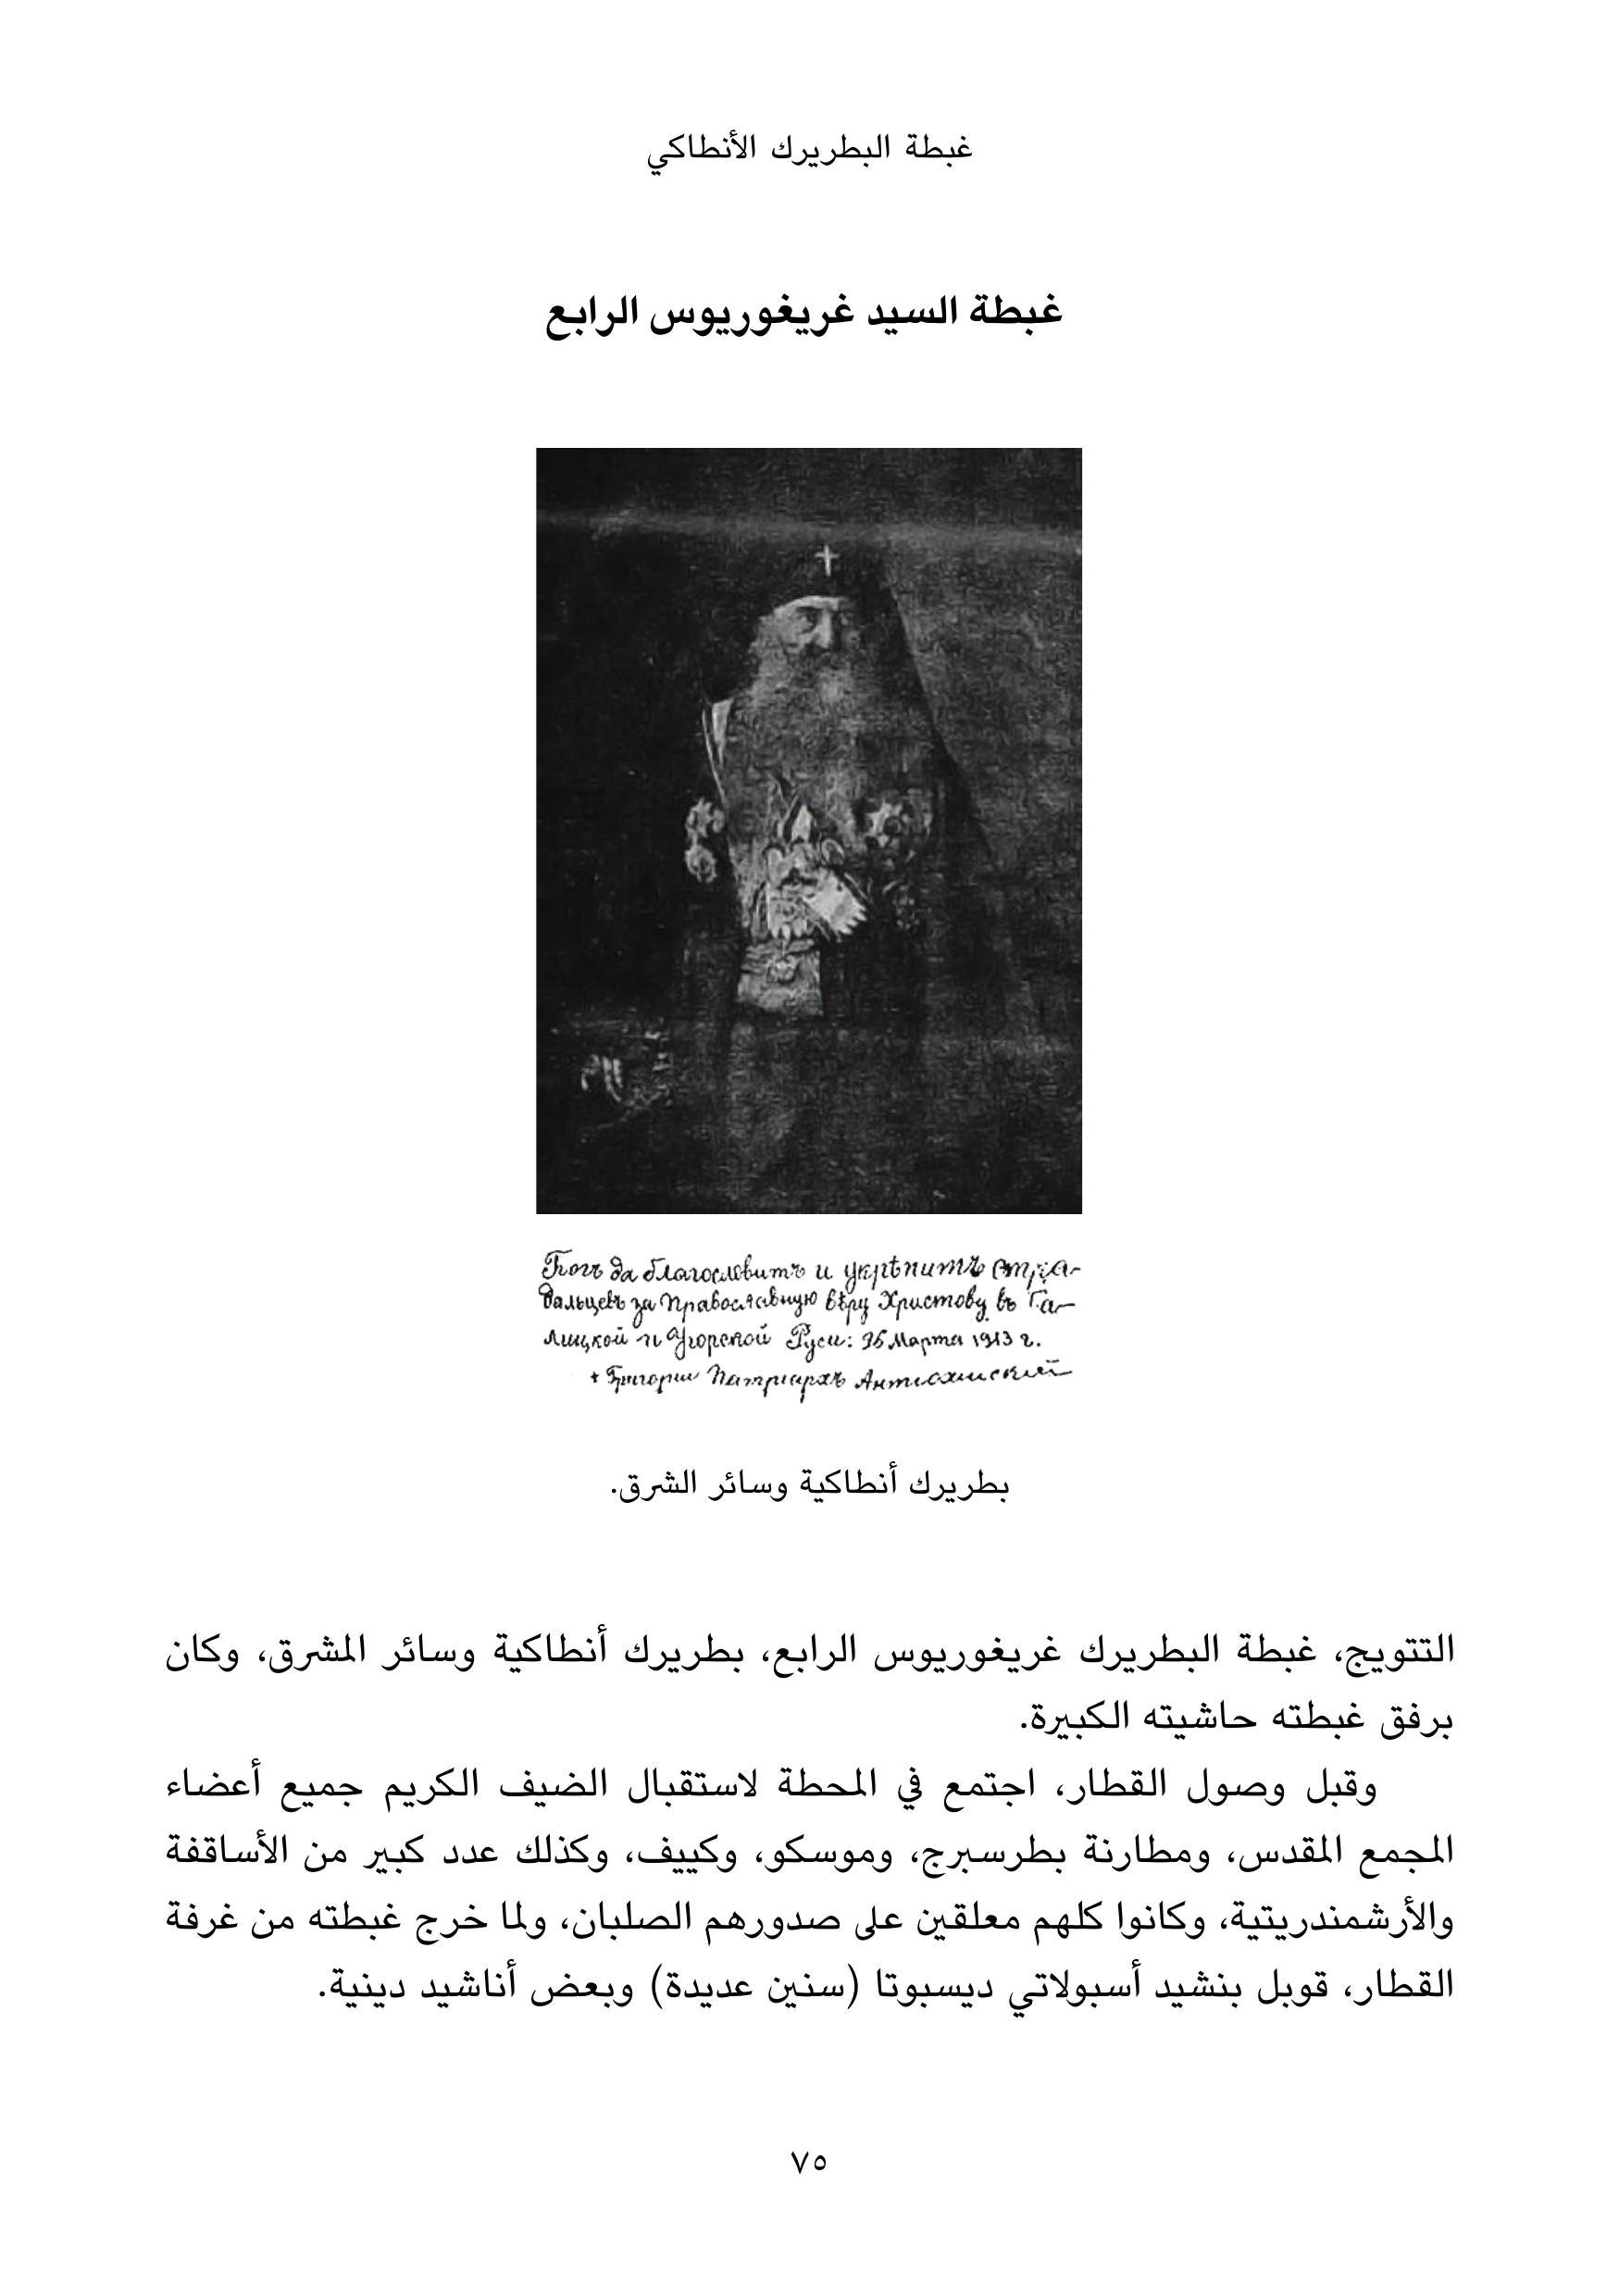 غبطة البطريرك الأنطاكي
غبطة السيد غريغوريوس الرابع
Богъ да благословитъ и укрѣпитъ стра-
дальцевъ за Православную вѣру Христову въ Га-
лицкой и Угорской Руси: Марта 1913 г.
+ Григорий Патріархъ Антіохійскій
بطريرك أنطاكية وسائر الشرق.
التتويج، غبطة البطريرك غريغوريوس الرابع، بطريرك أنطاكية وسائر المشرق، وكان
برفق غبطته حاشيته الكبيرة.
وقبل وصول القطار، اجتمع في المحطة لاستقبال الضيف الكريم جميع أعضاء
المجمع المقدس، ومطارنة بطرسبرج، وموسكو، وكييف، وكذلك عدد كبير من الأساقفة
والأرشمندريتية، وكانوا كلهم معلقين على صدورهم الصلبان، ولما خرج غبطته من غرفة
القطار، قوبل بنشيد أسبولاتي ديسبوتا (سنين عديدة) وبعض أناشيد دينية.
٧٥